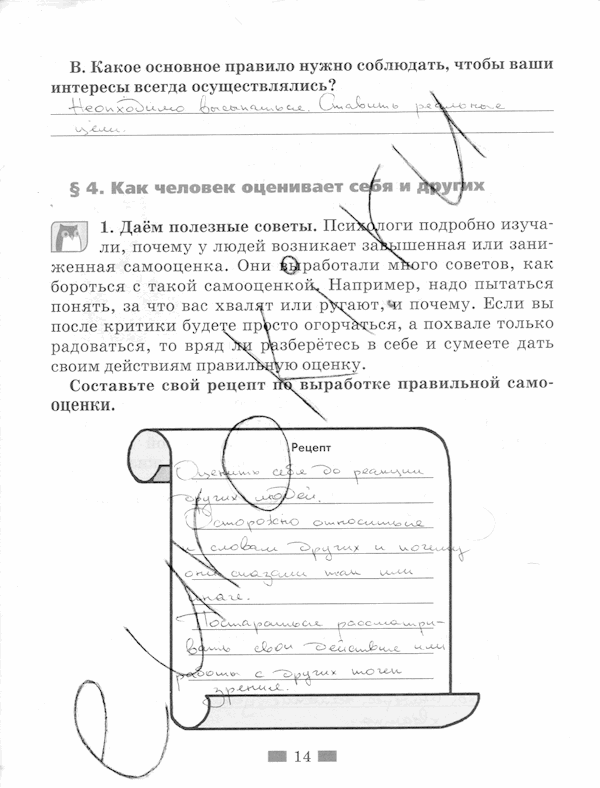 В. Какое основное правило нужно соблюдать, чтобы ваши
интересы всегда осуществлялись?
Необходимо высыпаться. Ставить реальные
цели.
§ 4. Как человек оценивает себя и других
1. Даём полезные советы. Психологи подробно изуча-
ли, почему у людей возникает завышенная или зани-
женная самооценка. Они выработали много советов, как
бороться с такой самооценкой. Например, надо пытаться
понять, за что вас хвалят или ругают, и почему. Если вы
после критики будете просто огорчаться, а похвале только
радоваться, то вряд ли разберётесь в себе и сумеете дать
своим действиям правильную оценку.
Составьте свой рецепт по выработке правильной само-
оценки.
Рецепт
Оценить себя до реакции
других людей.
Осторожно относиться
к словам других и почему
они сказали так или
иначе.
Постараться рассматри-
вать свои действие или
работы с других точек
зрения.
14